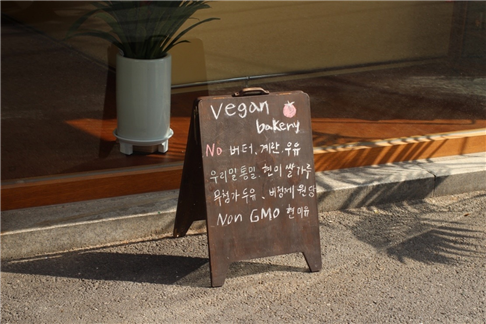 vegan
bakery
No 버터, 계란, 우유
우리밀 통밀, 현미 쌀가루
무첨가 두유, 비정제 원당
Non GMO 현미유